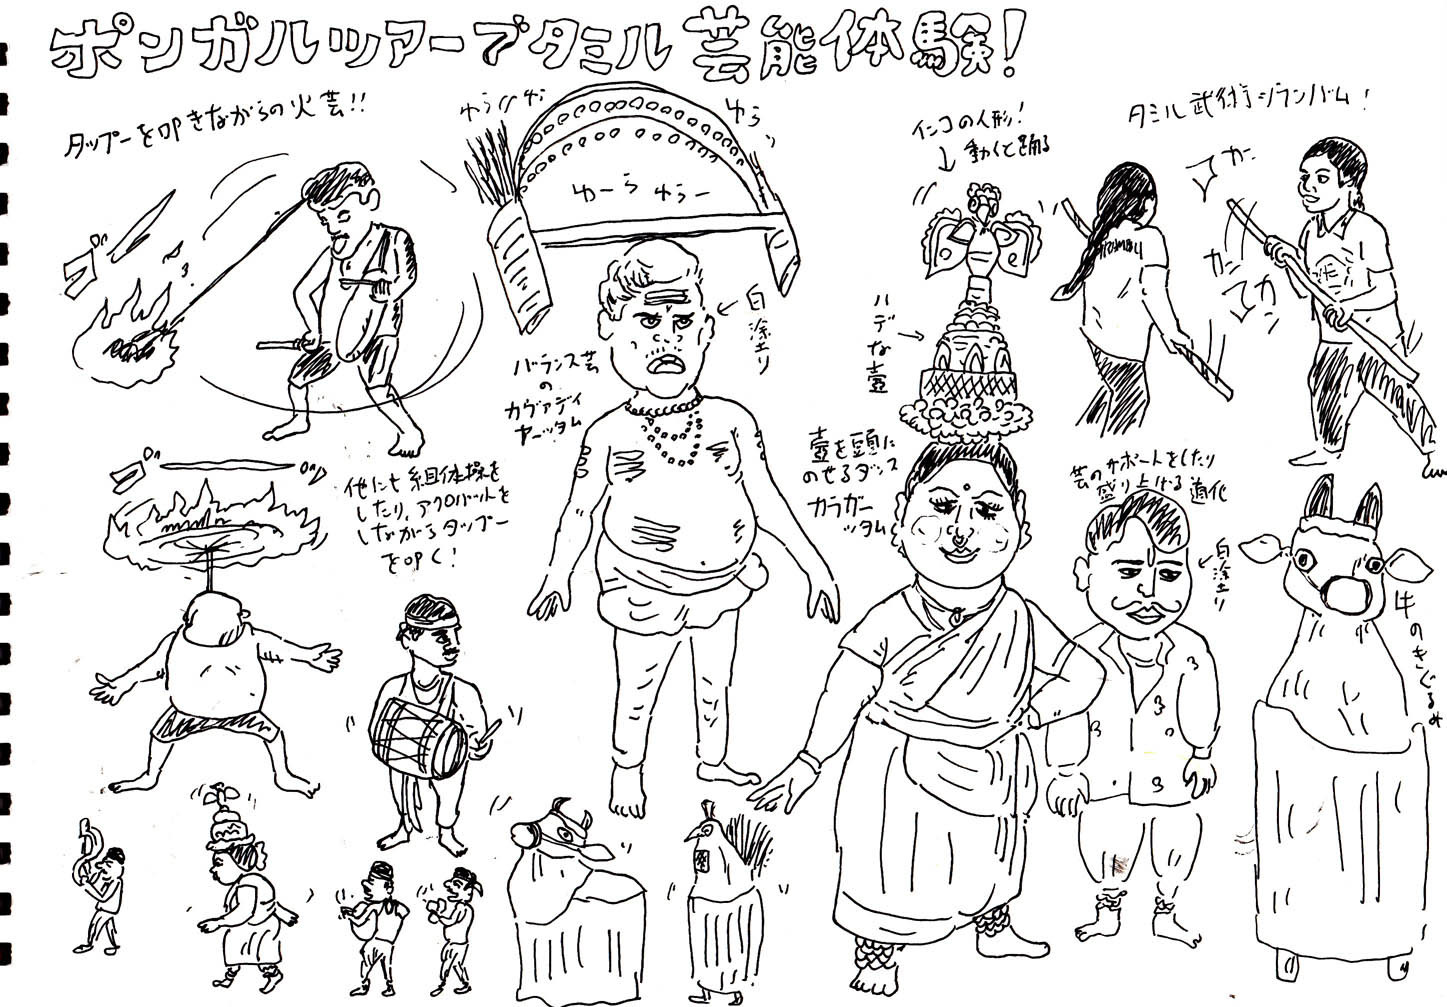 ポンガルツアーでタミル芸能体験!
タップーを叩きながらの火芸!!
ゆら
ゆら
ゆーらゆらー
インコの人形!
↓動くと踊る
タミル武術シランバム!
カン
カン
カン
←白塗り
ハデな壺→
バランス芸
の
カヴァディ
ヤーッタム
壺を頭に
のせるダンス
カラガー
ッタム
芸のサポートをしたり
盛り上げる道化
←白塗り
牛のきぐるみ
他にも組体操を
したり、アクロバットを
しながらタップー
を叩く!